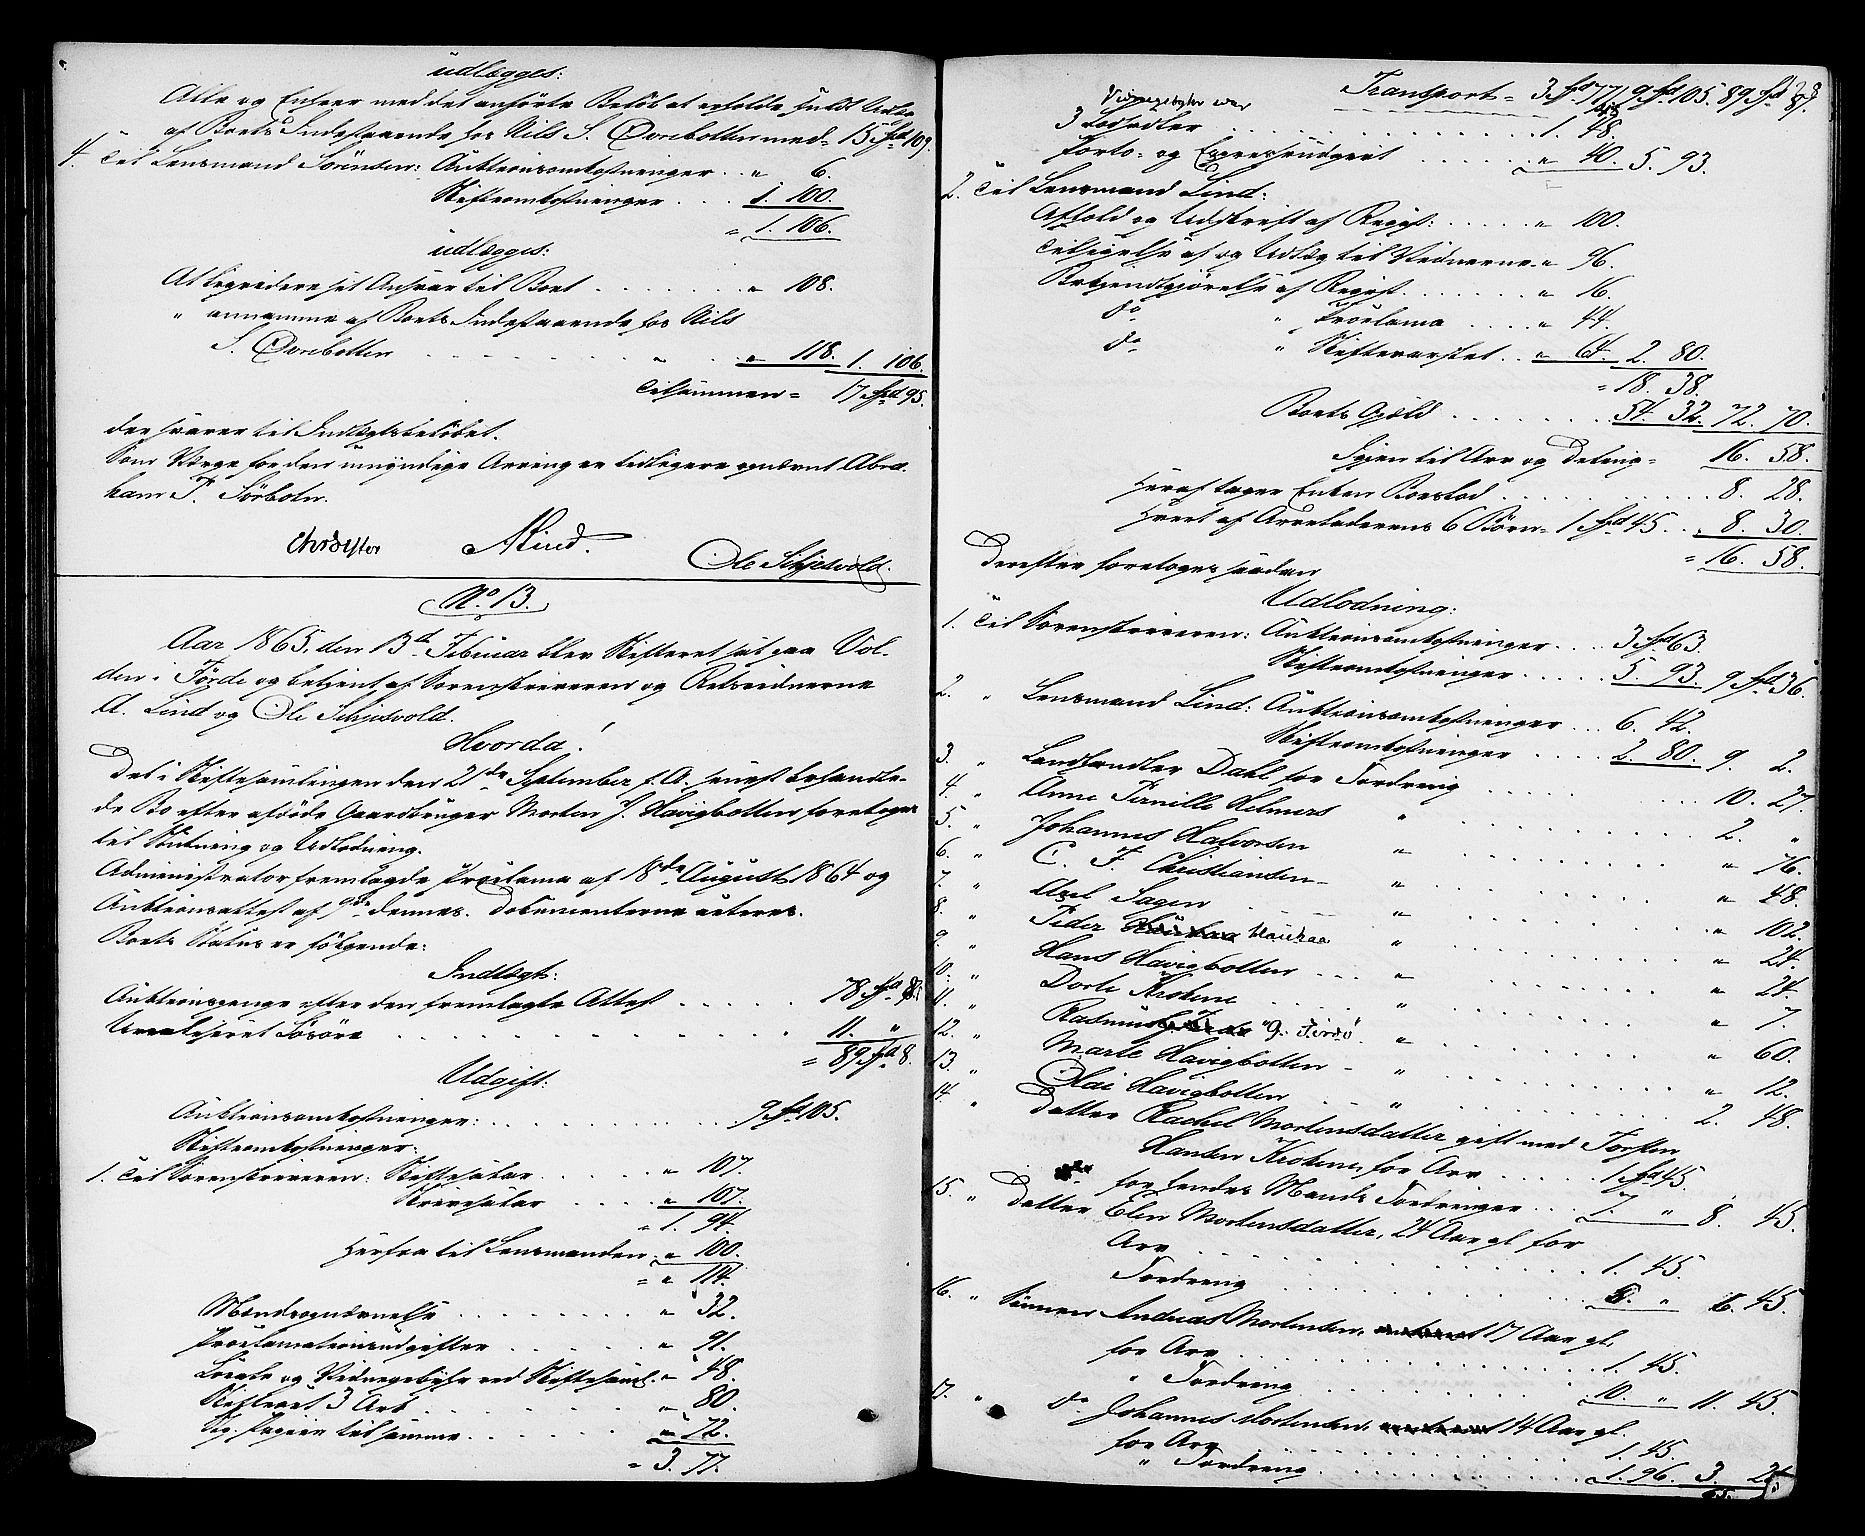 udlægges:
Alle og Enhver med det anførte Beløb at erholde fuldt Udlæg
af Boets Indestaaende hos Nils S. Øvrebotten med = 15 Spd 109.
4. Til Lensmand Sørensen: Auktionsomkostninger . . " 6.
Skifteomkostninger . . . 1. 100.
= 1. 106.
udlægges:
At liqvidere sit Ansvar til Boet . . . . . . " 108.
" annamme af Boets Indestaaende hos Nils
S. Øvrebotten . . . . . . " 118. 1. 106.
Tilsammen = 17 Spd 95.
der svarer til Indtægtsbeløbet.
Som Værge for den umyndige Arving er tidligere opnævnt Abra-
ham T. Sørbotn.
Lind. Ole Schjelvold.
No. 13.
Aar 1865, den 13de Februar blev Skifteret sat paa Vol-
den i Førde og betjent af Sorenskriveren og Retsvidnerne
A. Lind og Ole Schjelvold.
Hvorda!
Det i Skiftesamlingen den 21de September f. A. senest behandle-
de Bo efter afdøde Gaardbruger Morten J. Havigbotten foretoges
til Slutning og Udlodning.
Administrator fremlagde Proclama af 18de August 1864 og
Auktionsattest af 9de dennes. Dokumenterne acteres.
Boets Status er følgende:
Indtægt:
Auktionspenge efter den fremlagte Attest . . . . 78 Spd 8.
Uauktioneret Løsøre . . . . . . 11. "
= 89 Spd 8.
Udgift:
Auktionsomkostninger: . . . . . . 9 Spd 105.
Skifteomkostninger:
1. Til Sorenskriveren: Skiftesalær . . . . " 107.
Skrivesalær . . . . " 107.
= 1. 94.
Herfra til Lensmanden " 100.
= " 114.
Mandsopnævnelse . . . . . " 32.
Proclamationsudgifter . . . . . " 91.
Locale og Vidnegebyhr ved Skiftesaml. " 48.
Skifteret 3 Ark . . . . . " 80.
St. Papir til samme . . . . . " 72.
= 3. 77.
Transport = 3 Spd 77 9 Spd 105. 89 Spd 8.
3 Lodsedler . . . . . . 1. 48.
Porto- og Expresseudgivt . . . . . " 40. 5. 93.
2. Til Lensmand Lind:
Afhold og Udskrift af Regist: . . . . . " 100.
Tilsigelse af og Udlæg til Vidnerne " 96.
Bekjendtgjørelse af Regist. . . . . . " 16.
do " Proclama . . . . " 44.
do " Skifteværket . . " 64. 2. 80.
= 18. 38.
Boets Gjæld . . . . . . 54. 32. 72. 70.
Igjen til Arv og Deling = 16. 58.
Heraf tager Enken Boeslod . . . . . . 8. 28.
Hvert af Arveladerens 6 Børn = 1 Spd 45. . . 8. 30.
= 16. 58.
Derefter foretoges saadan
Udlodning:
1. Til Sorenskriveren: Auktionsomkostninger . . . . 3 Spd 63.
Skifteomkostninger . . . . . 5. 93. 9 Spd 36.
2. " Lensmand Lind: Auktionsomkostninger . . . 6. 42.
Skifteomkostninger . . . . 2. 80. 9. 2.
3. " Landhandler Dahl for Fordring . . . . . . 10. 27.
4. " Anne Pernille Helmers " . . . . . . 2. "
5. " Johannes Halvorsen " . . . . . . " 76.
6. " C. F. Christiansen " . . . . . . " 48.
7. " Axel Sagen " . . . . . . " 102.
8. " Peder " . . . . . . " 24.
9. " Hans Havigbotten . . . " . . . . . . " 24.
10. " Dorte Krokene . . . . " . . . . . . " 7.
11. " Rasmus . " . . . . . . " 60.
12. " Marte Havigbotten " . . . . . . " 12.
13. " Olai Havigbotten . . . " . . . . . . 2. 48.
14. " Datter Rachel Mortensdatter gift med Torsten
Hansen Krokene, for Arv . . . . . 1 Spd 45.
for hendes Mands Fordringer . . . 7. " 8. 45.
15. " Datter Elen Mortensdatter, 24 Aar gl. for
Arv . . . . . . 1. 45.
Fordring . . . . . . 5. " 6. 45.
16. " Sønnen Andreas Mortensen, 17 Aar gl.
for Arv . . . . . . 1. 45.
" Fordring . . . . . . 10. " 11. 45.
17. " do Johannes Mortensen, 14 Aar gl.
for Arv . . . . . . 1. 45.
" Fordring . . . . . . 1. 96. 3. 21.